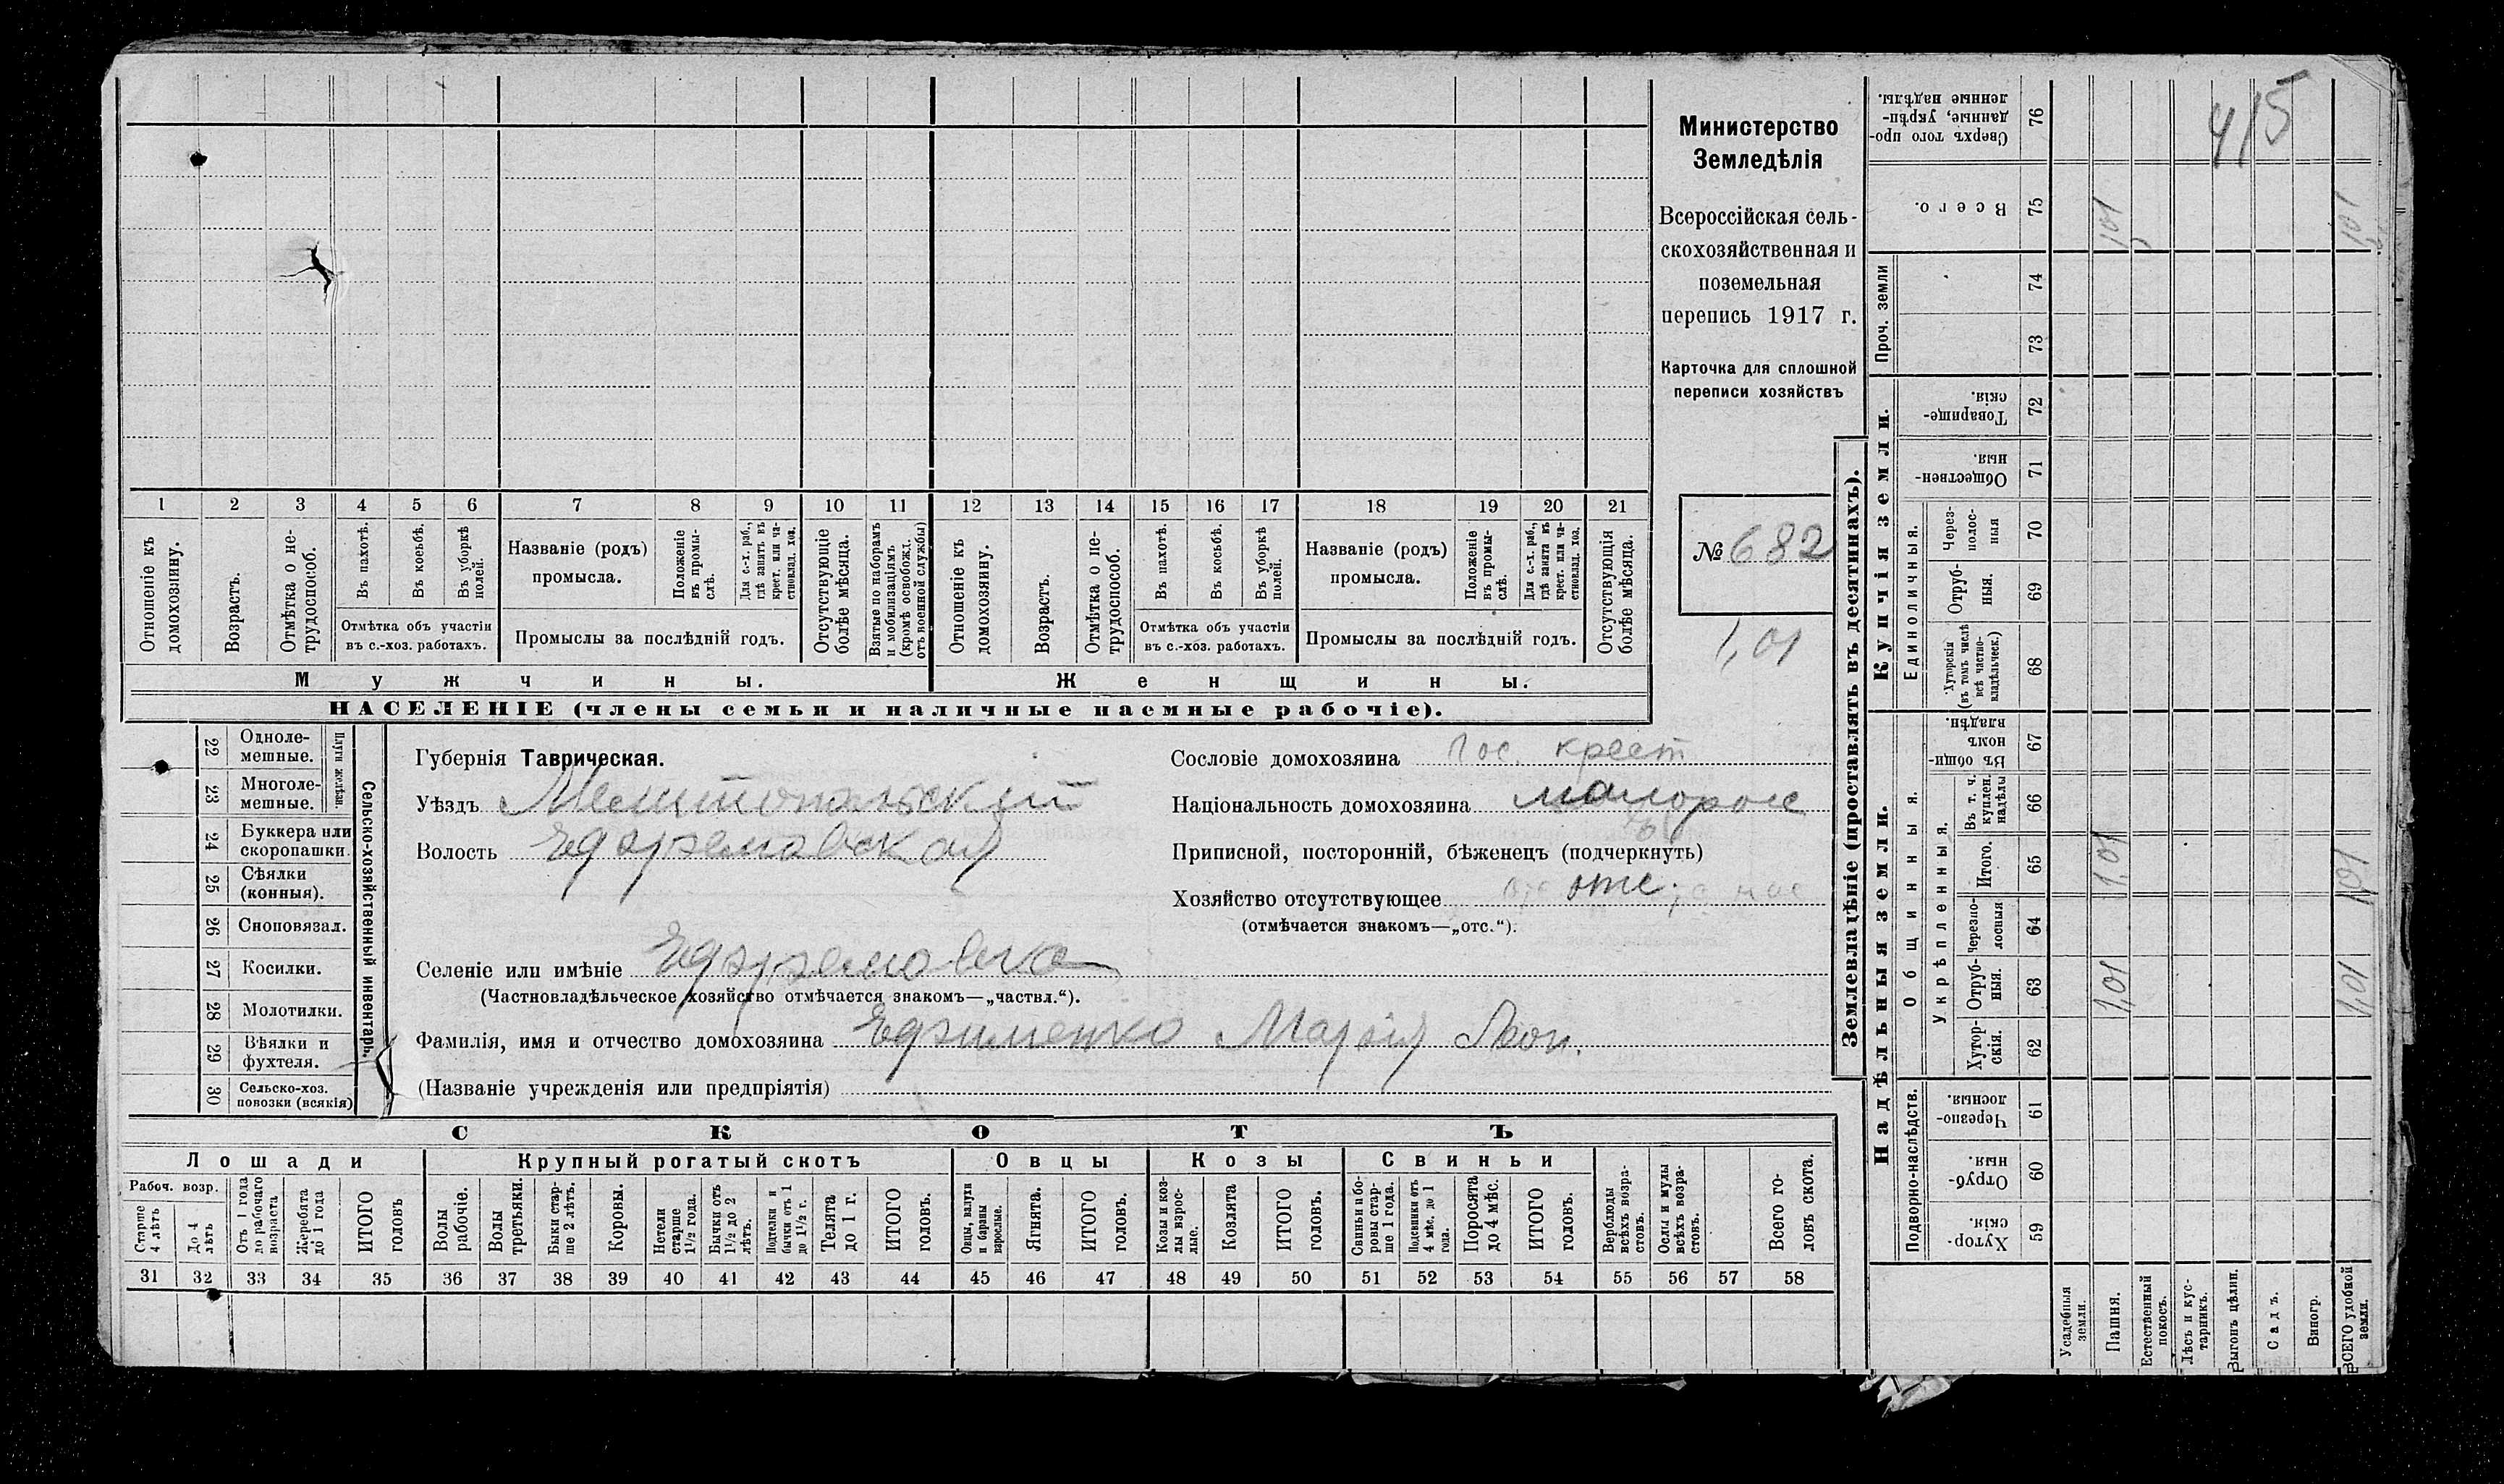 Министерство
Земледѣлія
Всероссійская сель-
скохозяйственная и
поземельная
перепись 1917 г.
Карточка для сплошной
переписи хозяйствъ
№ 682
1,01
415
1 2 3 4 5 6 7 8 9 10 11 12 13 14 15 16 17 18 19 20 21
Отношеніе къ домохозяину.
Возрастъ.
Отмѣтка о не-трудоспособ.
Въ пахотѣ.
Въ косьбѣ.
Въ уборкѣ полей.
Отмѣтка объ участіи
въ с.-хоз. работахъ.
Названіе (родъ)
промысла.
Положеніе въ промы-слѣ.
Для с.-х. раб., гдѣ занятъ въ крест. или ча-стновлад. хоз.
Промыслы за послѣдній годъ.
Отсутствующіе болѣе мѣсяца.
Взятые по наборамъ и мобилизаціямъ (кромѣ освобожд. отъ военной службы)
Отношеніе къ домохозяину.
Возрастъ.
Отмѣтка о не-трудоспособ.
Въ пахотѣ.
Въ косьбѣ.
Въ уборкѣ полей.
Отмѣтка объ участіи
въ с.-хоз. работахъ.
Названіе (родъ)
промысла.
Положеніе въ промы-слѣ.
Для с.-х. раб., гдѣ занята въ крест. или ча-стновлад. хоз.
Промыслы за послѣдній годъ.
Отсутствующія болѣе мѣсяца.
Мужчины.
Женщины.
НАСЕЛЕНІЕ (члены семьи и наличные наемные рабочіе).
22 Одноле-мешные.
23 Многоле-мешные.
Плуги желѣзн.
24 Буккера или скоропашки.
25 Сѣялки (конныя).
26 Сноповязал.
27 Косилки.
28 Молотилки.
29 Вѣялки и фухтеля.
30 Сельско-хоз. повозки (всякія)
Сельско-хозяйственный инвентарь.
Губернія Таврическая.
Уѣздъ Мелитопольскій
Волость Ефремовская
Селеніе или имѣніе Ефремовка
(Частновладѣльческое хозяйство отмѣчается знакомъ—„частвл.“).
Фамилія, имя и отчество домохозяина Ефименко Марія Леон.
(Названіе учрежденія или предпріятія)
Сословіе домохозяина Гос. крест
Національность домохозяина малорос
Приписной, посторонній, бѣженецъ (подчеркнуть)
Хозяйство отсутствующее отс.
(отмѣчается знакомъ—„отс.“).
СКОТЪ
Лошади
Крупный рогатый скотъ
Овцы
Козы
Свиньи
Рабоч. возр.
Старше 4 лѣтъ
До 4 лѣтъ
Отъ 1 года до рабочаго возраста
Жеребята до 1 года
ИТОГО головъ
Волы рабочіе.
Волы третьяки.
Быки стар-ше 2 лѣтъ.
Коровы.
Нетели старше 1½ года.
Бычки отъ 1½ до 2 лѣтъ.
Подтелки и бычки отъ 1 до 1½ г.
Телята до 1 г.
ИТОГО головъ.
Овцы, валухи и бараны взрослые.
Ягнята.
ИТОГО головъ.
Козы и коз-лы взрос-лые.
Козлята
ИТОГО головъ.
Свиньи и бо-ровы стар-ше 1 года.
Подсвинки отъ 4 мѣс. до 1 года.
Поросята до 4 мѣс.
ИТОГО головъ.
Верблюды всѣхъ возра-стовъ.
Ослы и мулы всѣхъ возра-стовъ.
Всего го-ловъ скота.
31 32 33 34 35 36 37 38 39 40 41 42 43 44 45 46 47 48 49 50 51 52 53 54 55 56 57 58
Землевладѣніе (проставлять въ десятинахъ).
Надѣльныя земли.
Купчія земли.
Проч. земли
Подворно-наслѣдств.
Общинныя.
Укрѣпленныя.
Единоличныя.
Хутор-скія. 59
Отруб-ныя. 60
Черезпо-лосныя. 61
Хутор-скія. 62
Отруб-ныя. 63 1,01 1,01
Черезпо-лосныя 64
Итого. 65 1,01 1,01
Въ т. ч. куплен. надѣлы 66
Въ общи-номъ владѣн. 67
Хуторскія (въ томъ числѣ всѣ частно-владѣльческ.) 68
Отруб-ныя. 69
Через-полос-ныя 70
Обществен-ныя. 71
Товарище-скія. 72
73
74
Всего. 75 1,01 1,01
Сверхъ того про-данные, укрѣп-ленные надѣлы. 76
Усадебныя земли.
Пашня.
Естественный покосъ.
Лѣсъ и кус-тарникъ.
Выгонъ цѣлин.
Садъ.
Виногр.
ВСЕГО удобной земли.